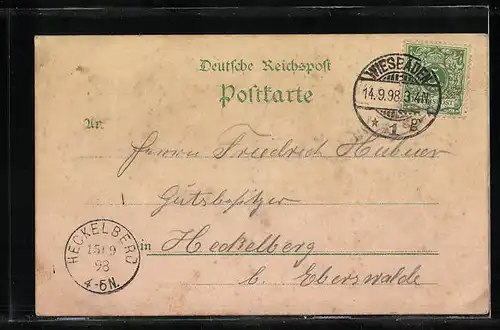 Deutsche Reichspost
Postkarte
WIESBADEN
14.9.98 3-4N
* 1 g
An
Herrn Friedrich Hübner
Gutsbesitzer
in Heckelberg
b. Eberswalde
HECKELBERG
15/9
98
4-5N.